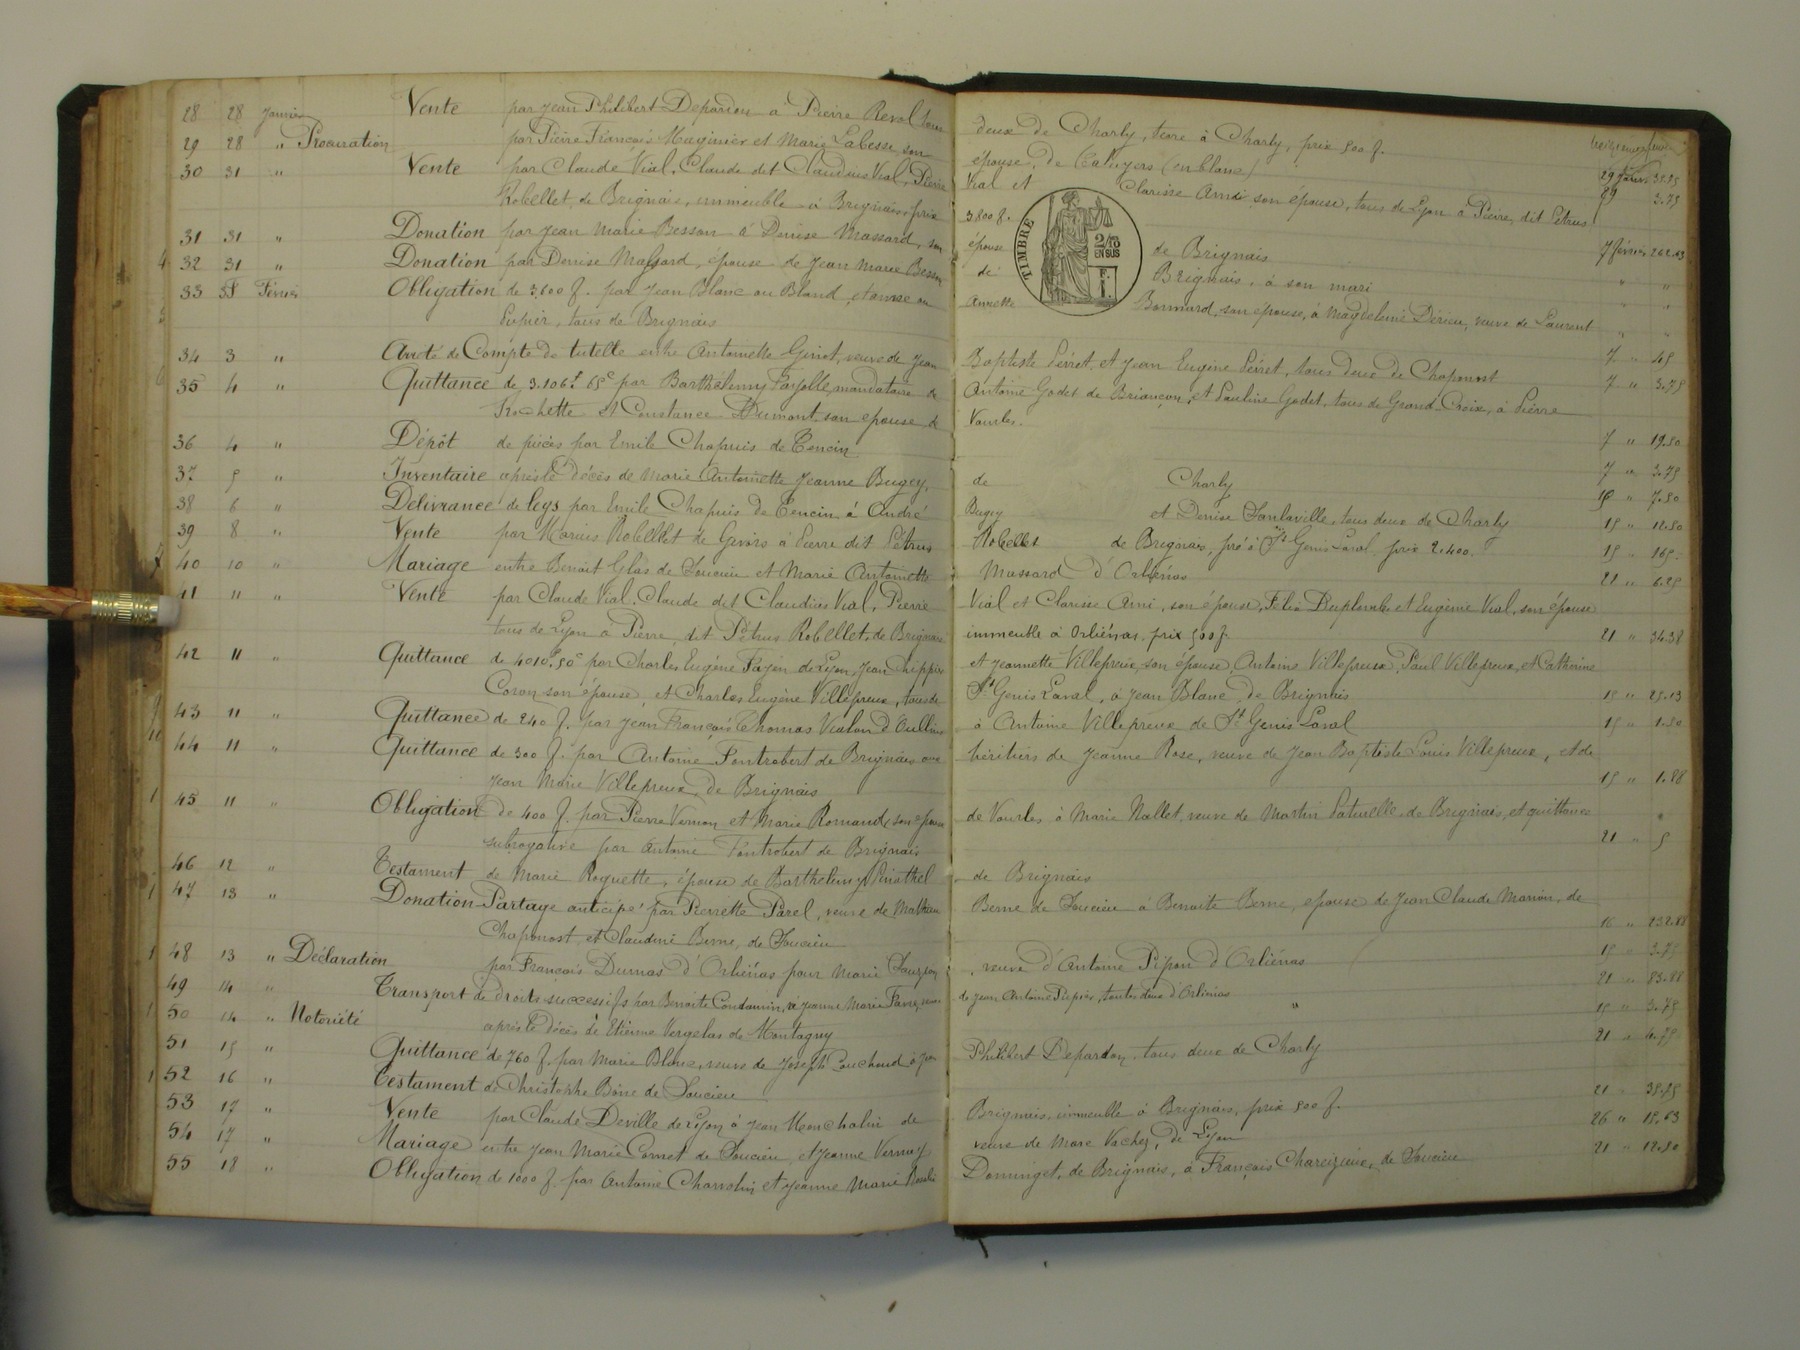 28 28 Janvier Vente par Jean Philibert Depardon à Pierre Revol tous deux de Charly, terre à Charly, prix 500 f.
29 28 " Procuration par Pierre François Maginier et Marie Labesse, son épouse, de (en blanc) 29 Janv. 3.75
30 31 " Vente par Claude Vial, Claude dit Claudius Vial, Pierre Vial et Clarisse Ami son épouse, tous de Lyon à Pierre dit Pétrus
Robellet, de Brignais, immeuble à Brignais, prix 3.800 f. 7 février
TIMBRE
2/10
EN SUS
F.
1.
31 31 " Donation par Jean Marie Besson à Denise Massard, son épouse de Brignais
32 31 " Donation par Denise Massard, épouse de Jean Marie Besson de Brignais, à son mari " "
33 Février Obligation de 3,600 f. par Jean Blanc ou Bland, et Annette Bonnard, son épouse, à Magdeleine Dérieu, veuve de Laurent
Eupier, tous de Brignais
34 3 " Arrêté de Compte de tutelle entre Antoinette Ginot, veuve de Jean Baptiste Péret, et Jean Eugène Péret, tous deux de Chaponost
35 4 " Quittance de 3.106f 65c par Barthélemy Fayolle, mandataire de Antoine Godet de Briançon, et Pauline Godet, tous de Grand-Croix, à Pierre
Rochette et Constance Dumont son épouse, de Vourles.
36 4 " Dépôt de pièces par Emile Chapuis de Tencin 7 " 3.75
37 5 " Inventaire après le décès de Marie Antoinette Jeanne Bugey, de Charly 7.50
38 6 " Délivrance de legs par Emile Chapuis de Tencin à André Bugey et Denise Sanlaville, tous deux de Charly 15 " 12.50
39 8 " Vente par Marius Robellet de Givors à Pierre dit Pétrus Robellet de Brignais, pré à St Genis Laval prix 2.400 f 15 " 165
40 10 " Mariage entre Benoit Glas de Soucieu et Marie Antoinette Massard d'Orliénas 21 " 6.25
41 11 " Vente par Claude Vial, Claude dit Claudius Vial, Pierre Vial et Clarisse Ami, son épouse, Félix Duplomb et Eugénie Vial, son épouse
tous de Lyon à Pierre dit Pétrus Robellet, de Brignais immeuble à Orliénas, prix 500 f. 21 " 34.38
42 11 " Quittance de 4010f,50c par Charles Eugène Fayen de Lyon, Jean et Jeannette Villepreux, son épouse, Antoine Villepreux, Paul Villepreux, et Catherine
Coron son épouse, et Charles Eugène Villepreux, tous de St Genis Laval, à Jean Blanc, de Brignais 15 " 25.13
43 11 " Quittance de 240 f. par Jean François Thomas Vialon d'Oullins à Antoine Villepreux de St Genis Laval 15 " 1.50
44 11 " Quittance de 300 f. par Antoine Fontrobert de Brignais aux héritiers de Jeanne Rose, veuve de Jean Baptiste Louis Villepreux, et de
Jean Marie Villepreux, de Brignais 15 " 1.88
45 11 " Obligation de 400 f. par Pierre Vernon et Marie Romand, son épouse de Vourles à Marie Nallet, veuve de Martin Paturelle, de Brignais, et quittance
subrogative par Antoine Fontrobert de Brignais 21 " 5
46 12 " Testament de Marie Roquette, épouse de Barthélemy de Brignais
47 13 " Donation-Partage anticipé par Pierrette Parel, veuve de Mathieu Berne de Soucieu à Benoite Berne, épouse de Jean Claude Marion, de
Chaponost, et Claudine Berne, de Soucieu 16 " 232.88
48 13 " Déclaration par François Dumas d'Orliénas pour Marie veuve d'Antoine Pipon d'Orliénas 15 " 3.75
49 14 " Transport de droits successifs par Benoite Condamin, à Jeanne Marie Favre, veuve de Jean Antoine Dupré, toutes deux d'Orliénas 21 " 83.88
50 14 " Notoriété après le décès de Etienne Vergelas de Montagny " 15 " 3.75
51 15 " Quittance de 760 f. par Marie Blanc, veuve de Joseph Couchoud à Jean Philibert Depardon, tous deux de Charly 21 " 4.75
52 16 " Testament de Christophe de Soucieu
53 17 " Vente par Claude Deville de Lyon à Jean Monchalin de Brignais, immeuble à Brignais, prix 500 f. 21 "
54 17 " Mariage entre Jean Marie Cornet de Soucieu, et Jeanne Vernay veuve de Marc Vachez, de Lyon 26 " 15.63
55 18 " Obligation de 1000 f. par Antoine Charvolin et Jeanne Marie Rosalie Dominget, de Brignais, à François Charézieux, de Soucieu 21 " 12.50